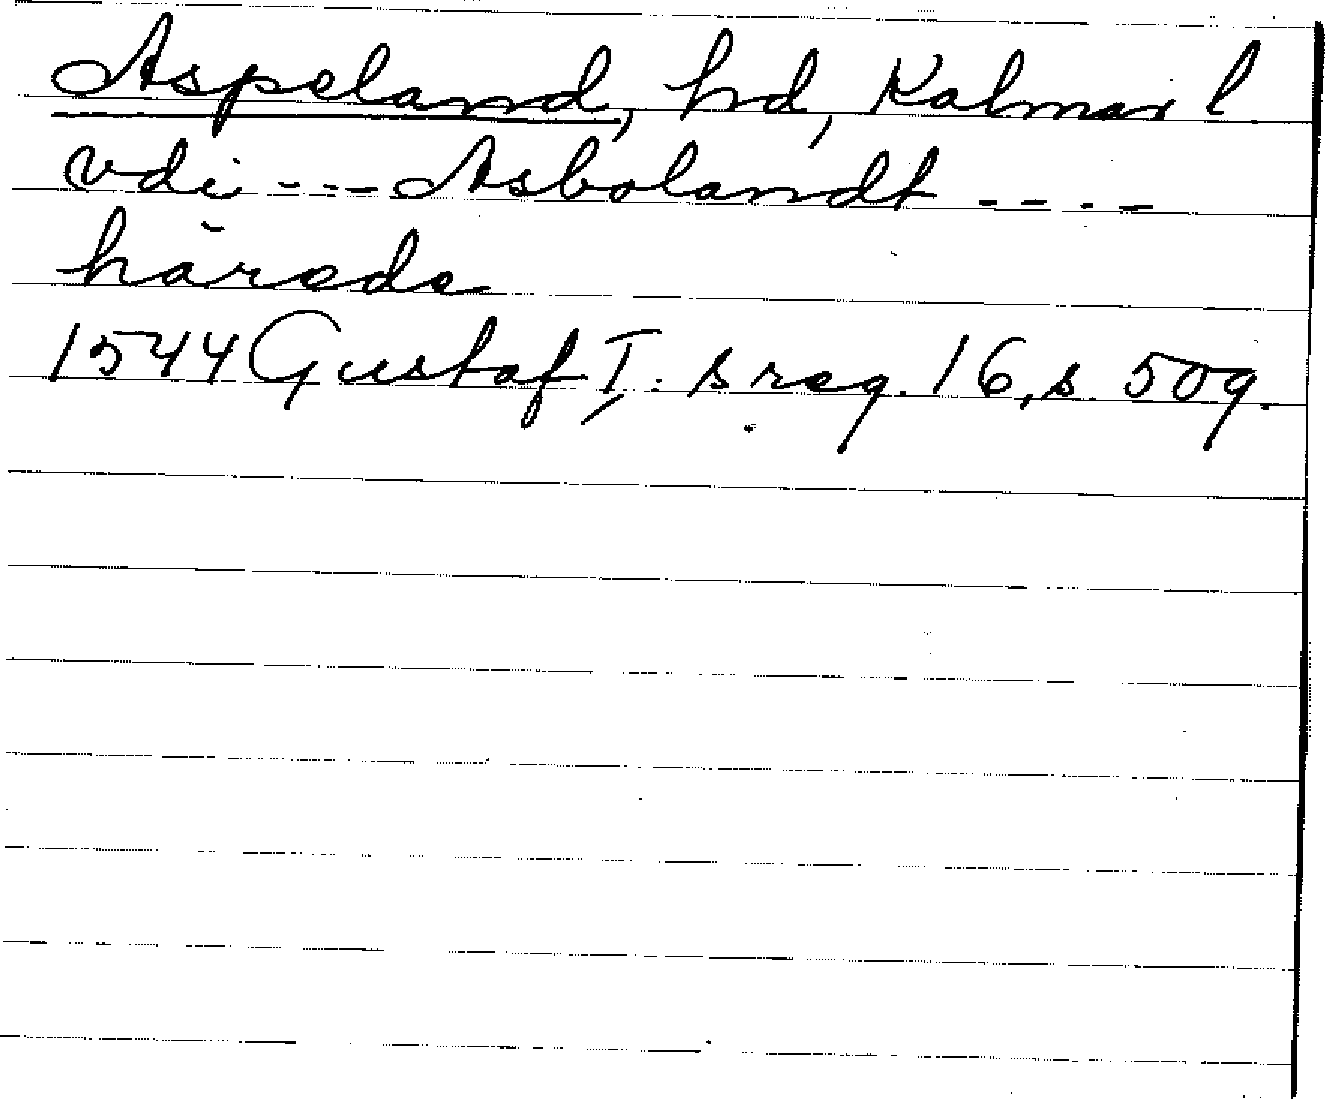 Aspeland, hd, Kalmar l
vdi --- Asbolandt ----
härede
1544 Gustaf I:s reg. 16, s. 509.